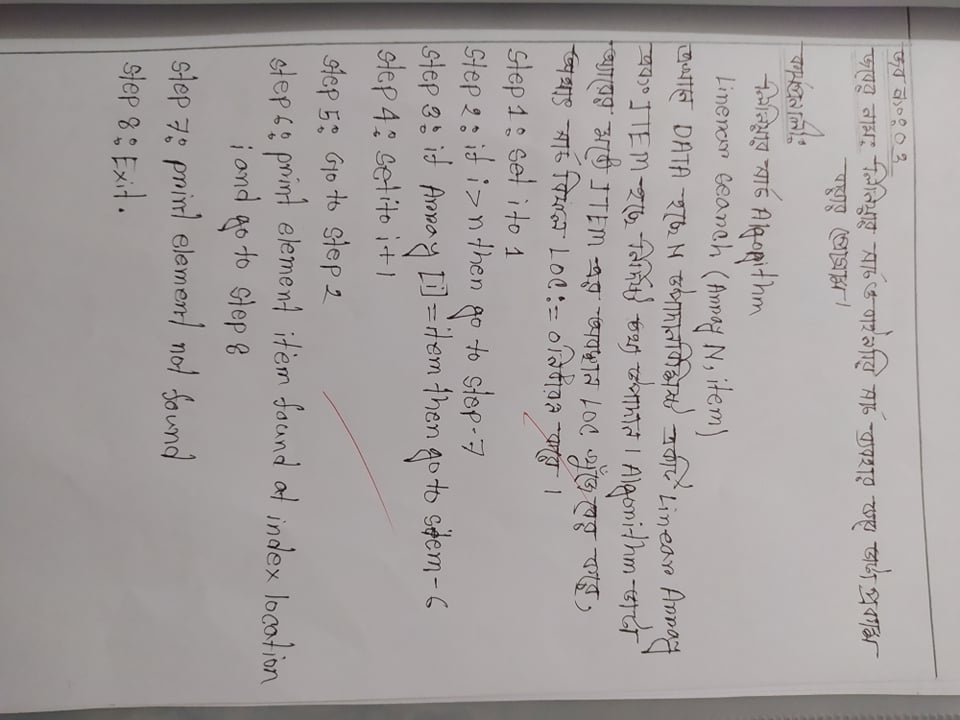 জব নং: ০২
জবের নামঃ লিনিয়ার সার্চ ও বাইনারি সার্চ ব্যবহার করে প্রোগ্রাম
কার্যপ্রণালি:
লিনিয়ার সার্চ Algorithm
Linear search (Array N, item)
এখানে DATA হচ্ছে N উপাদানবিশিষ্ট একটি Linear Array
এবং ITEM হচ্ছে নির্দিষ্ট তথ্য উপাদান। Algorithm টি
অ্যারের মধ্যে ITEM এর অবস্থান LOC খুঁজে বের করে,
অথবা সার্চ বিফলে LOC := 0 নির্ধারণ করে।
step 1: set i to 1
step 2: if i > n then go to step-7
step 3: if Array [i] = item then go to stem-6
step 4: set i to i+1
step 5: Go to step 2
step 6: print element item found at index location
i and go to step 8
step 7: print element not found
step 8: Exit.